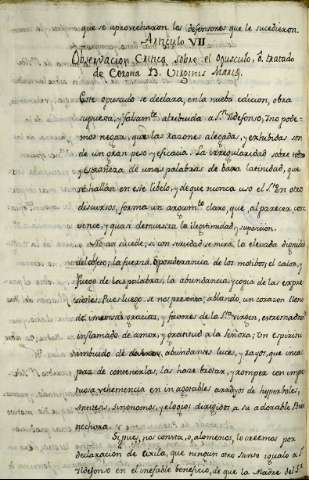 que se aprovecharon los defensores que le sucedieron.
Articulo VII
Observacion Critica sobre el opusculo, ô tratado
de Corona B. Virginis Mariæ.
Este opusculo se declara, en la nueba edicion, obra
supuesta, y falsamte. atribuida a Sn. Ildefonso, y no pode-
mos negar, que las razones alegadas, y exhibidas son
de un gran peso, y eficacia. La irregularidad sobre todo
y estrañeza de unas palabras de baxa latinidad, que
se hallan en este libelo, y de que nunca uso el Sto. en otro
discursos, forma un argumto. claro, que al parecer, con
vence, y quasi demuestra la ilegitimidad, y suposicion.
si con seriedad se mira, la elevada
del objeto, la fuerza, ô ponderancia de los motibos, el calor, y
fuego de las palabras, la abundancia, y copia de las expre
siones. Pues luego se nos presenta, ablando, un corazon lleno
de inmensas gracias, y favores de la Sma. virgen, extremadmte.
inflamado de amor, y gratitud a la Señora; Un espiritu
imbuido de abundantes luces, y rayos, que inca
paz de contenerlas, las hace brotar, y romper con impe
tuosa vehemencia en inagotables arroyos de hyperboles,
sinonomos, y elogios dirigidos a su adorable Bien
hechora.
Sipues, nos consta, o, alomenos, lo creemos por
declaracion de Cixila, que ningun otro Santo igualo a Sn.
Ildefonso en el inefable beneficio, de que la Madre del Sr.